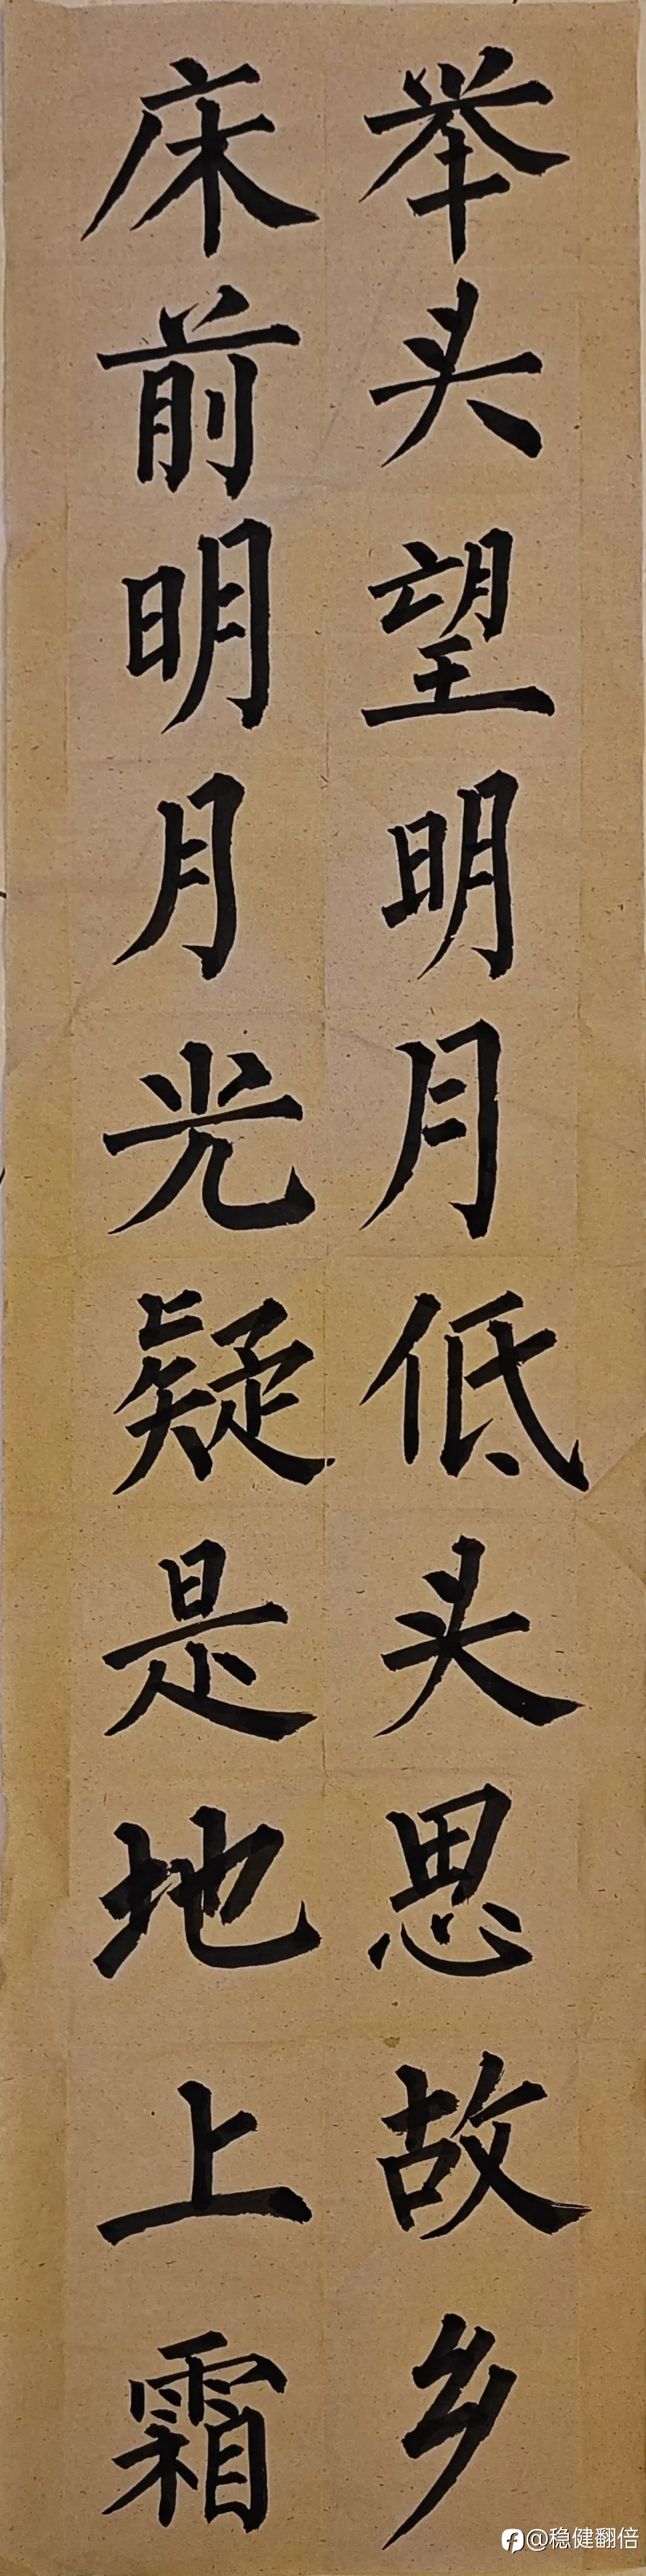 床前明月光疑是地上霜
举头望明月低头思故乡
@稳健翻倍